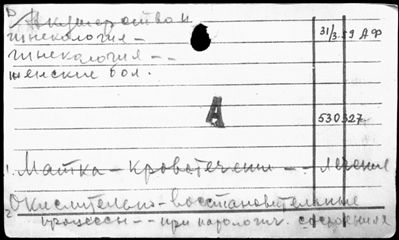 D Акушерство и
гинекология —
гинекология — —
женские бол.
31/3.59 АФ
А
530327
1. Матка — кровотечени — - лечение
2. Окислительно-восстановительные
процессы — - при патологич. состояния